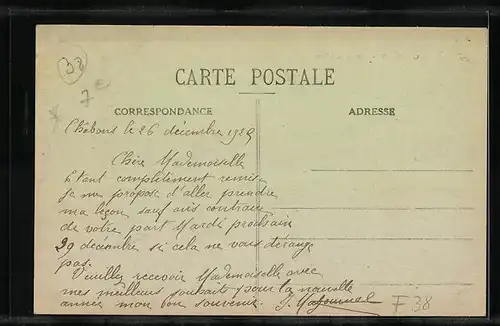 38
7 €
CARTE POSTALE
CORRESPONDANCE
ADRESSE
le 26 décembre 192
Chère Mademoiselle
Etant complètement remis
je me propose d'aller prendre
ma leçon sauf avis contraire
de votre part Mardi prochain
29 décembre si cela ne vous dérange
pas.
Veuillez recevoir Mademoiselle avec
mes meilleurs souhaits pour la nouvelle
année mon bon souvenir.
F 38